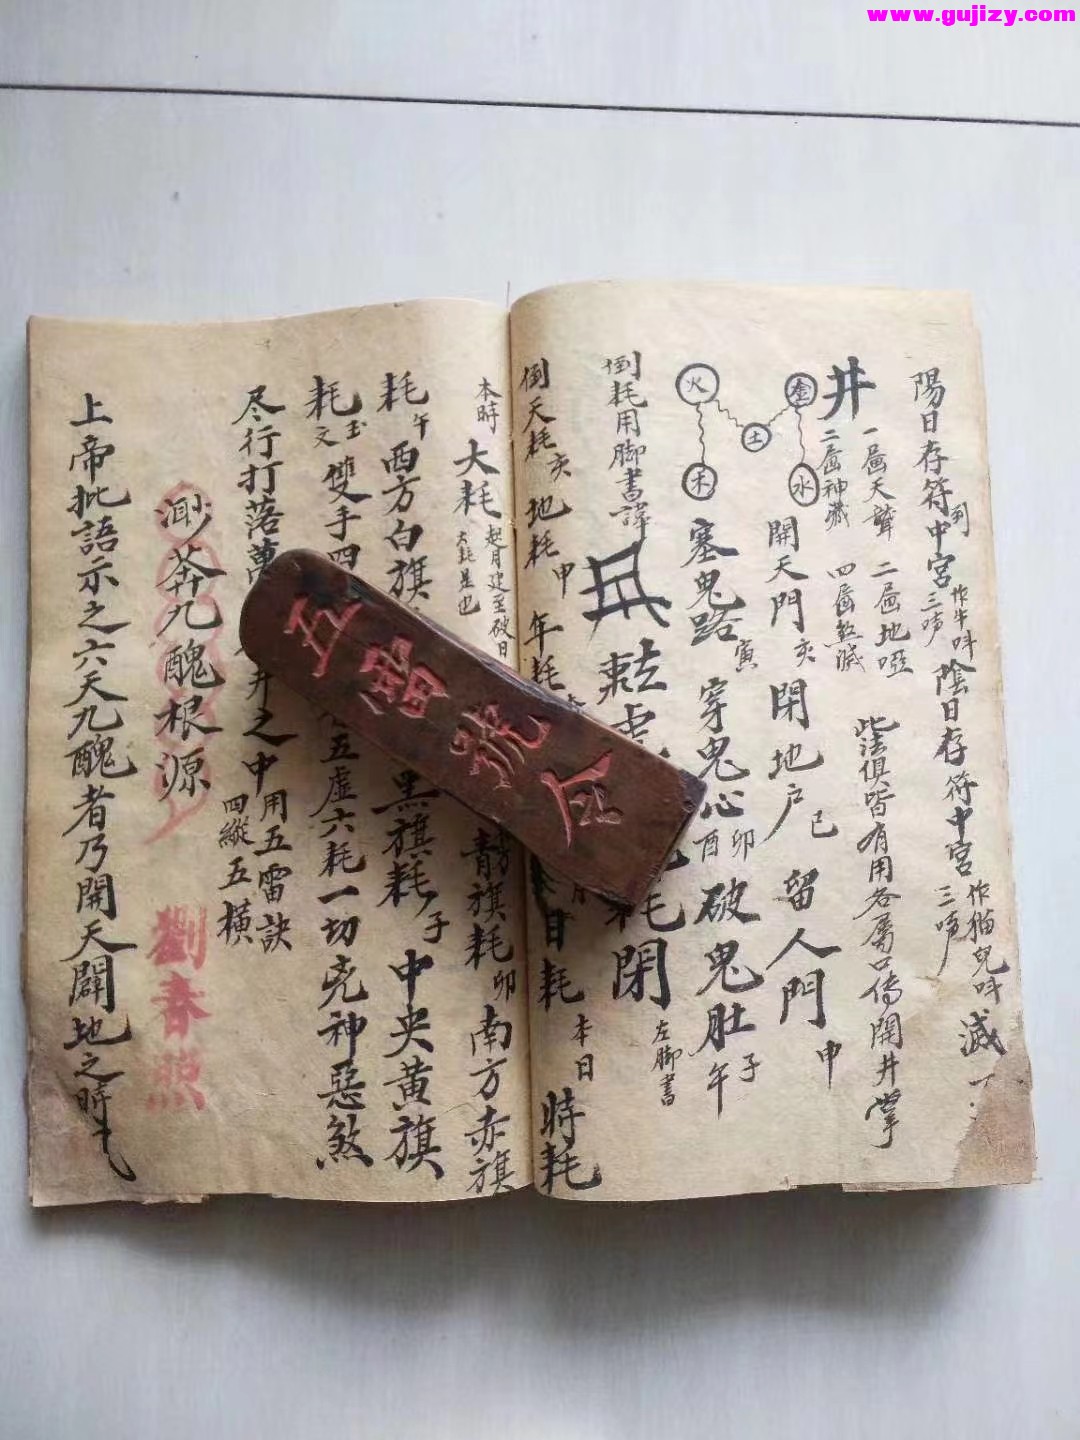 www.gujizy.com
陽日存符中宮倒三声作牛呌陰日存符中宮三声作猫兒呌滅
井
一畐天聾二畐地啞
二畐神藏四畐煞滅
此法俱皆有用各属口傳開井掌
金火土水木
開天門亥閉地户巳留人門申
塞鬼路寅穿鬼心卯酉破鬼肚子午
倒耗用脚書諱
耗閉左脚書
倒天耗亥地耗申年耗
日耗本日時耗
本時大耗起月建至破日大耗是也
青旗耗卯南方赤旗
耗午西方白旗
黑旗耗子中央黄旗
耗玉文雙手四
五虛六耗一切兇神惡煞
尽行打落萬
井之中用五雷訣四縱五橫
渺莽九醜根源
劉春照
上帝批語示之六天九醜者乃開天闢地之時
五雷號令